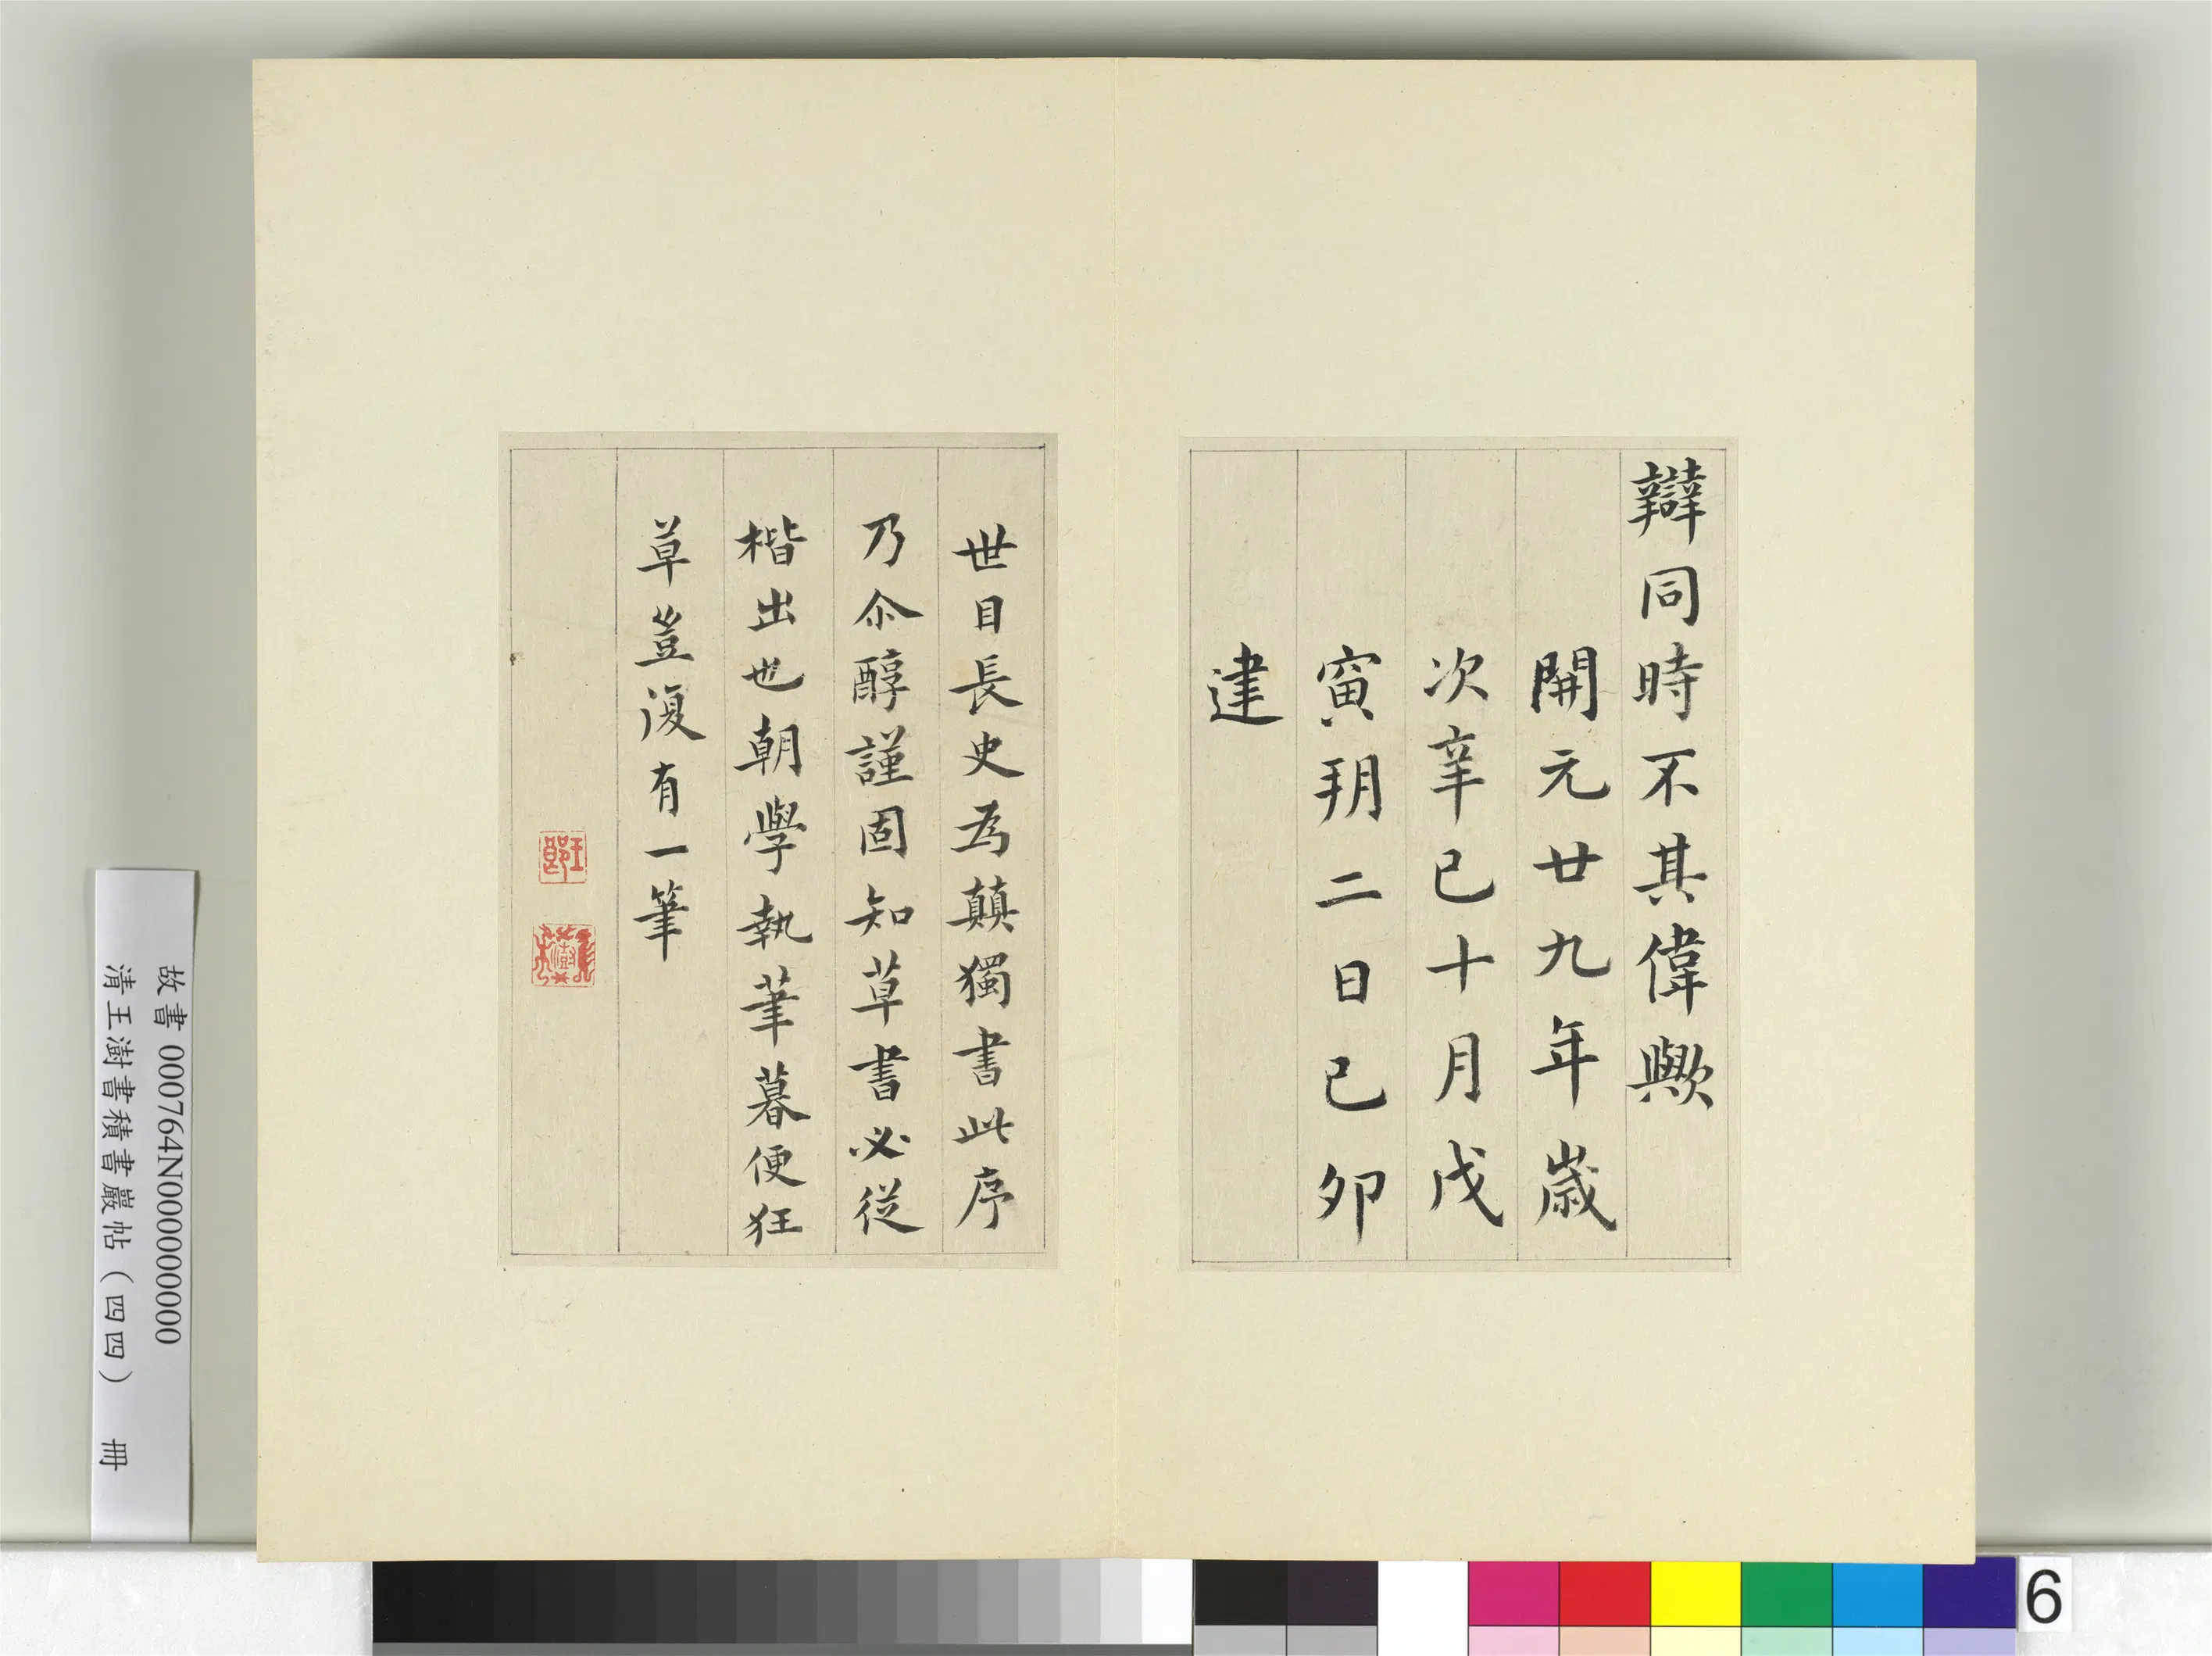 辯同時不其偉歟
開元廿九年歲
次辛巳十月戊
寅朔二日己卯
建
世目長史為顛獨書此序
乃尒醇謹固知草書必從
楷出也朝學執筆暮便狂
草豈復有一筆
故書 000764N000000000
清王澍書積書巖帖(四四) 冊
6